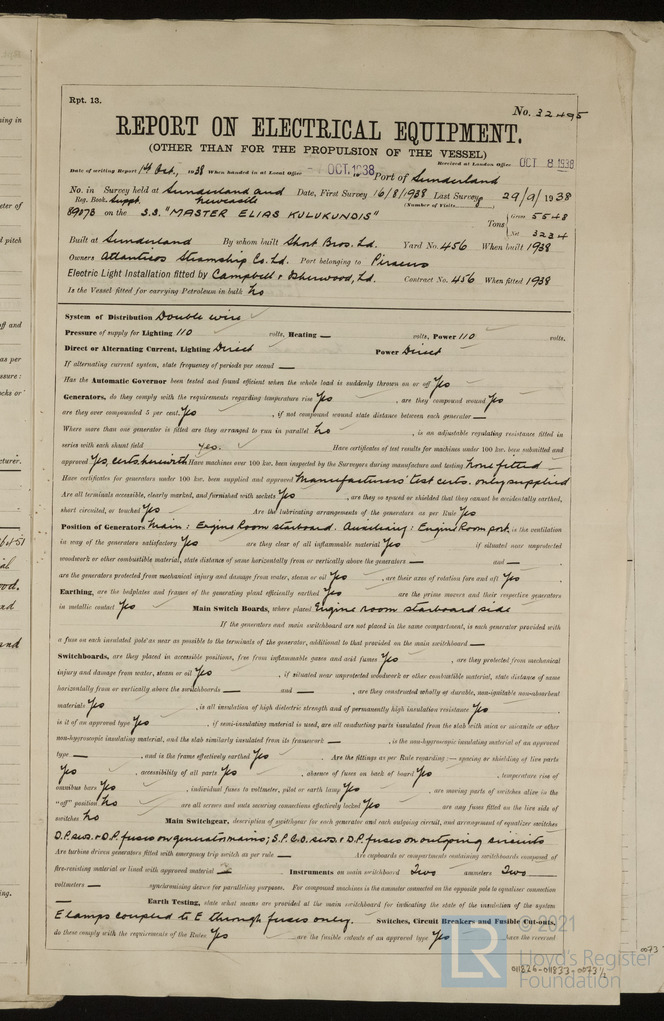 Rpt. 13.
No. 32495
REPORT ON ELECTRICAL EQUIPMENT.
(OTHER THAN FOR THE PROPULSION OF THE VESSEL)
Received at London Office OCT 8 1938
Date of writing Report 1938 When handed in at Local Office OCT. 1938 Port of Sunderland
No. in Survey held at Sunderland and Newcastle Date, First Survey 16/8/1938 Last Survey 29/9/1938
Reg. Book. Suppt. (Number of Visits
89073 on the S.S. "MASTER ELIAS KULUKUNDIS" Tons Gross 5548
Net 3234
Built at Sunderland By whom built Short Bros. Ld. Yard No. 456 When built 1938
Owners Atlanticos Steamship Co. Ld. Port belonging to Piraeus
Electric Light Installation fitted by Campbell & Isherwood, Ld. Contract No. 456 When fitted 1938
Is the Vessel fitted for carrying Petroleum in bulk No
System of Distribution Double wire
Pressure of supply for Lighting 110 volts, Heating — volts, Power 110 volts.
Direct or Alternating Current, Lighting Direct Power Direct
If alternating current system, state frequency of periods per second —
Has the Automatic Governor been tested and found efficient when the whole load is suddenly thrown on or off Yes
Generators, do they comply with the requirements regarding temperature rise Yes, are they compound wound Yes
are they over compounded 5 per cent. Yes, if not compound wound state distance between each generator —
Where more than one generator is fitted are they arranged to run in parallel No, is an adjustable regulating resistance fitted in
series with each shunt field yes. Have certificates of test results for machines under 100 kw. been submitted and
approved Yes, certs. herewith Have machines over 100 kw. been inspected by the Surveyors during manufacture and testing None fitted
Have certificates for generators under 100 kw. been supplied and approved Manufacturers' test certs. only supplied
Are all terminals accessible, clearly marked, and furnished with sockets Yes, are they so spaced or shielded that they cannot be accidentally earthed,
short circuited, or touched Yes Are the lubricating arrangements of the generators as per Rule Yes
Position of Generators Main: Engine Room starboard. Auxiliary: Engine Room port, is the ventilation
in way of the generators satisfactory Yes, are they clear of all inflammable material Yes, if situated near unprotected
woodwork or other combustible material, state distance of same horizontally from or vertically above the generators — and —,
are the generators protected from mechanical injury and damage from water, steam or oil Yes, are their axes of rotation fore and aft Yes,
Earthing, are the bedplates and frames of the generating plant efficiently earthed Yes are the prime movers and their respective generators
in metallic contact Yes Main Switch Boards, where placed Engine room starboard side
If the generators and main switchboard are not placed in the same compartment, is each generator provided with
a fuse on each insulated pole as near as possible to the terminals of the generator, additional to that provided on the main switchboard —
Switchboards, are they placed in accessible positions, free from inflammable gases and acid fumes Yes, are they protected from mechanical
injury and damage from water, steam or oil Yes, if situated near unprotected woodwork or other combustible material, state distance of same
horizontally from or vertically above the switchboards — and —, are they constructed wholly of durable, non-ignitable non-absorbent
materials Yes, is all insulation of high dielectric strength and of permanently high insulation resistance Yes,
is it of an approved type Yes, if semi-insulating material is used, are all conducting parts insulated from the slab with mica or micanite or other
non-hygroscopic insulating material, and the slab similarly insulated from its framework —, is the non-hygroscopic insulating material of an approved
type —, and is the frame effectively earthed Yes Are the fittings as per Rule regarding :— spacing or shielding of live parts
Yes, accessibility of all parts Yes, absence of fuses on back of board Yes, temperature rise of
omnibus bars Yes, individual fuses to voltmeter, pilot or earth lamp Yes, are moving parts of switches alive in the
"off" position No are all screws and nuts securing connections effectively locked Yes are any fuses fitted on the live side of
switches No Main Switchgear, description of switchgear for each generator and each outgoing circuit, and arrangement of equalizer switches
D.P. sws. & D.P. fuses on generator mains; S.P.C.O. sws. & D.P. fuses on outgoing circuits
Are turbine driven generators fitted with emergency trip switch as per rule — Are cupboards or compartments containing switchboards composed of
fire-resisting material or lined with approved material — Instruments on main switchboard Two ammeters Two
voltmeters — synchronising device for paralleling purposes. For compound machines is the ammeter connected on the opposite pole to equaliser connection
— Earth Testing, state what means are provided at the main switchboard for indicating the state of the insulation of the system
E lamps coupled to E through fuses only. Switches, Circuit Breakers and Fusible Cut-outs,
do these comply with the requirements of the Rules Yes are the fusible cutouts of an approved type Yes have the reversed
© 2021
LR
Lloyd's Register
Foundation
011826-011833-0073 1/2